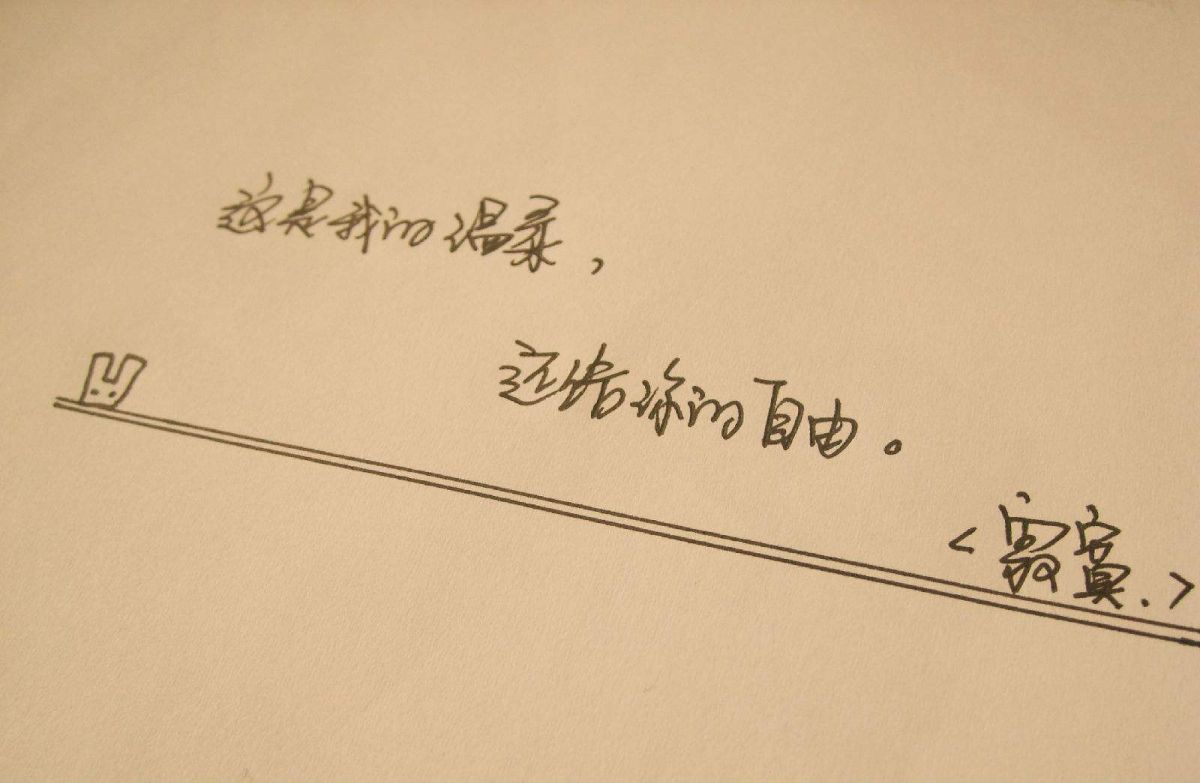 这是我的温柔，
还给你的自由。
<寂寞.>